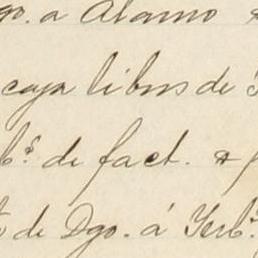 go. a Alamo &
caja libros de
b.s de fact. &
de Dgo. á Yerb.s